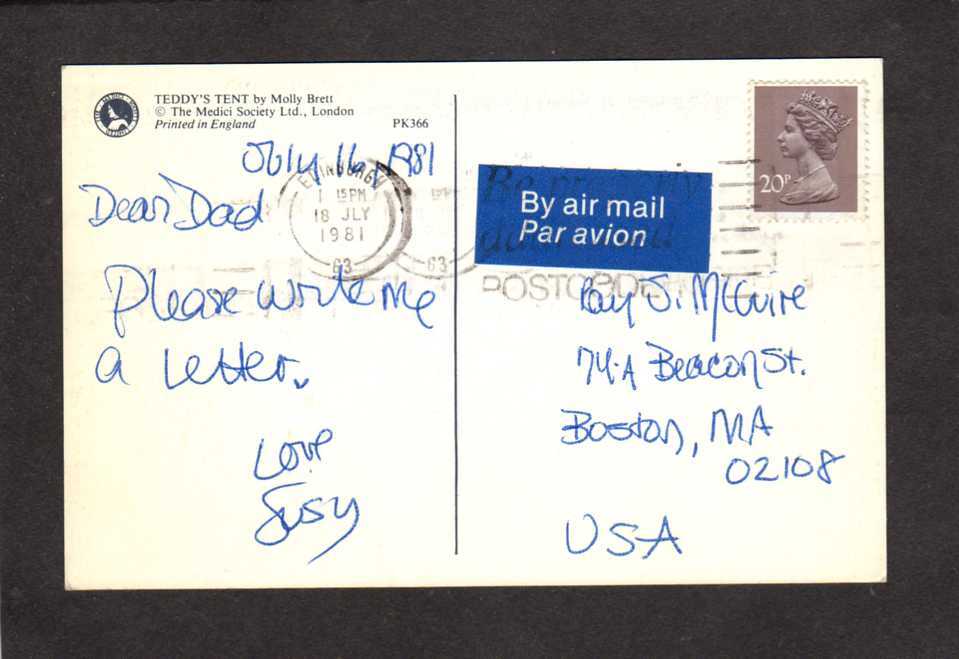 TEDDY'S TENT by Molly Brett
© The Medici Society Ltd., London
Printed in England PK366
July 16, 1981
Dear Dad
Please write me
a letter.
Love
Susy
EDINBURGH
15 PM
18 JLY
1981
63
63
20P
By air mail
Par avion
POSTCODE
Ray J. McGuire
74A Beacon St.
Boston, MA
02108
USA